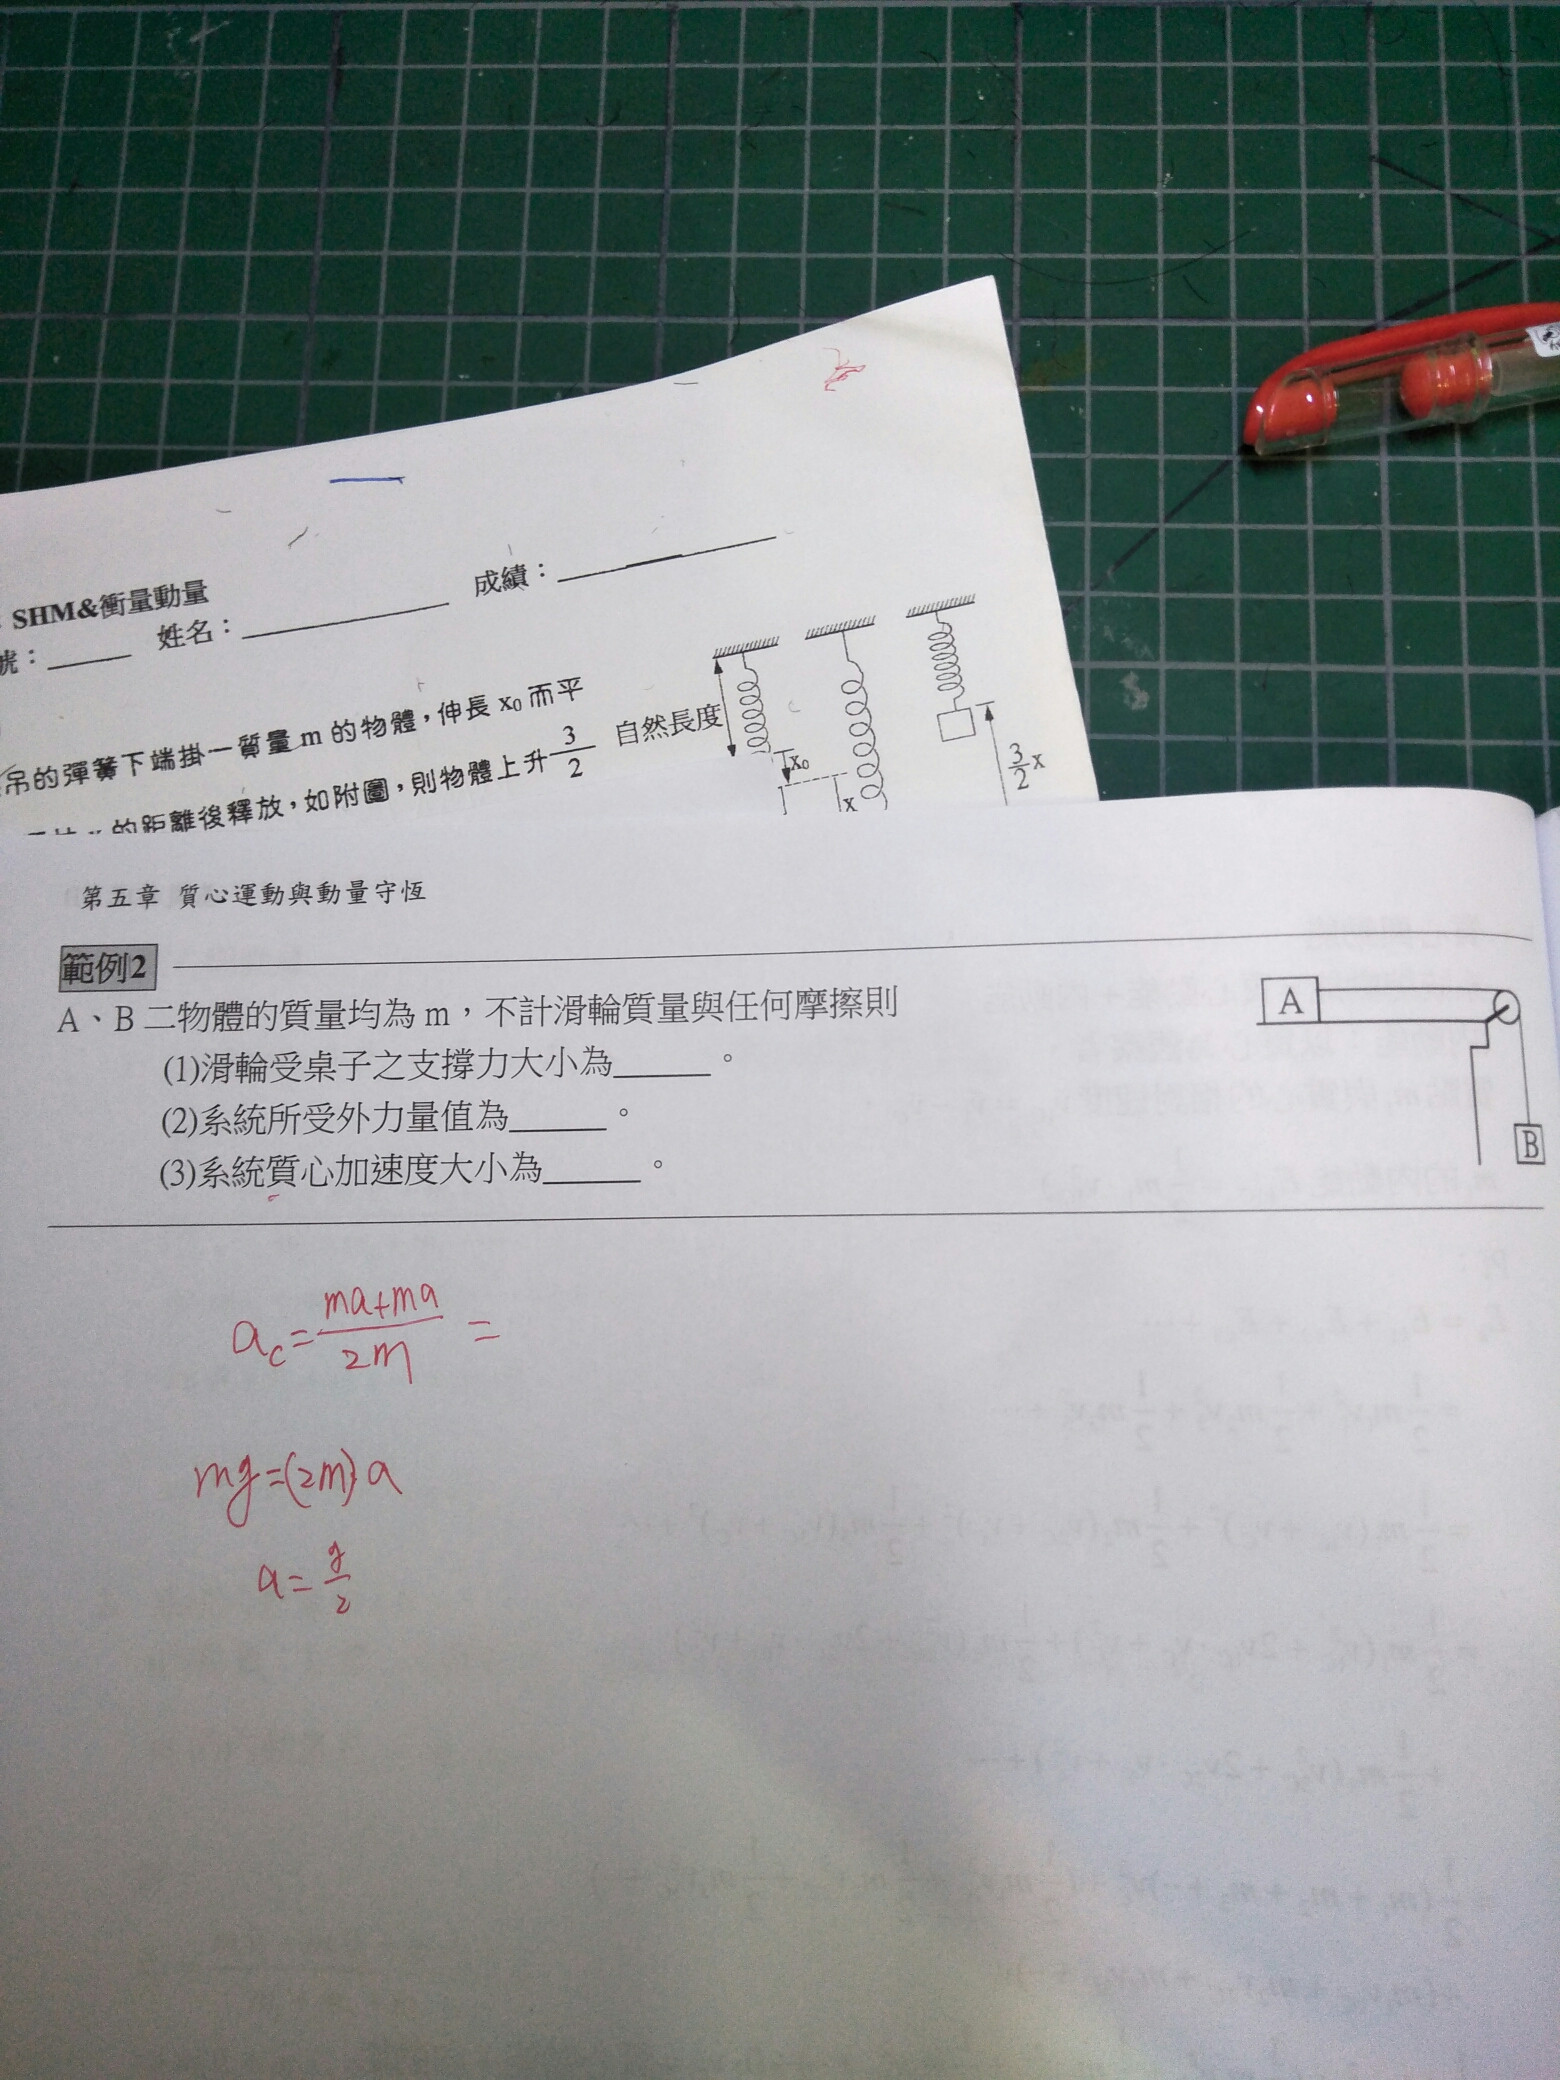 SHM&衝量動量
號：
姓名：
成績：
吊的彈簧下端掛一質量 m 的物體，伸長 x₀ 而平
的距離後釋放，如附圖，則物體上升 3/2
自然長度
x₀
x
3/2 x
第五章 質心運動與動量守恆
範例2
A、B 二物體的質量均為 m，不計滑輪質量與任何摩擦則
(1)滑輪受桌子之支撐力大小為______。
(2)系統所受外力量值為______。
(3)系統質心加速度大小為______。
A
B
a_c = (ma+ma)/2m =
mg=(2m)a
a= g/2